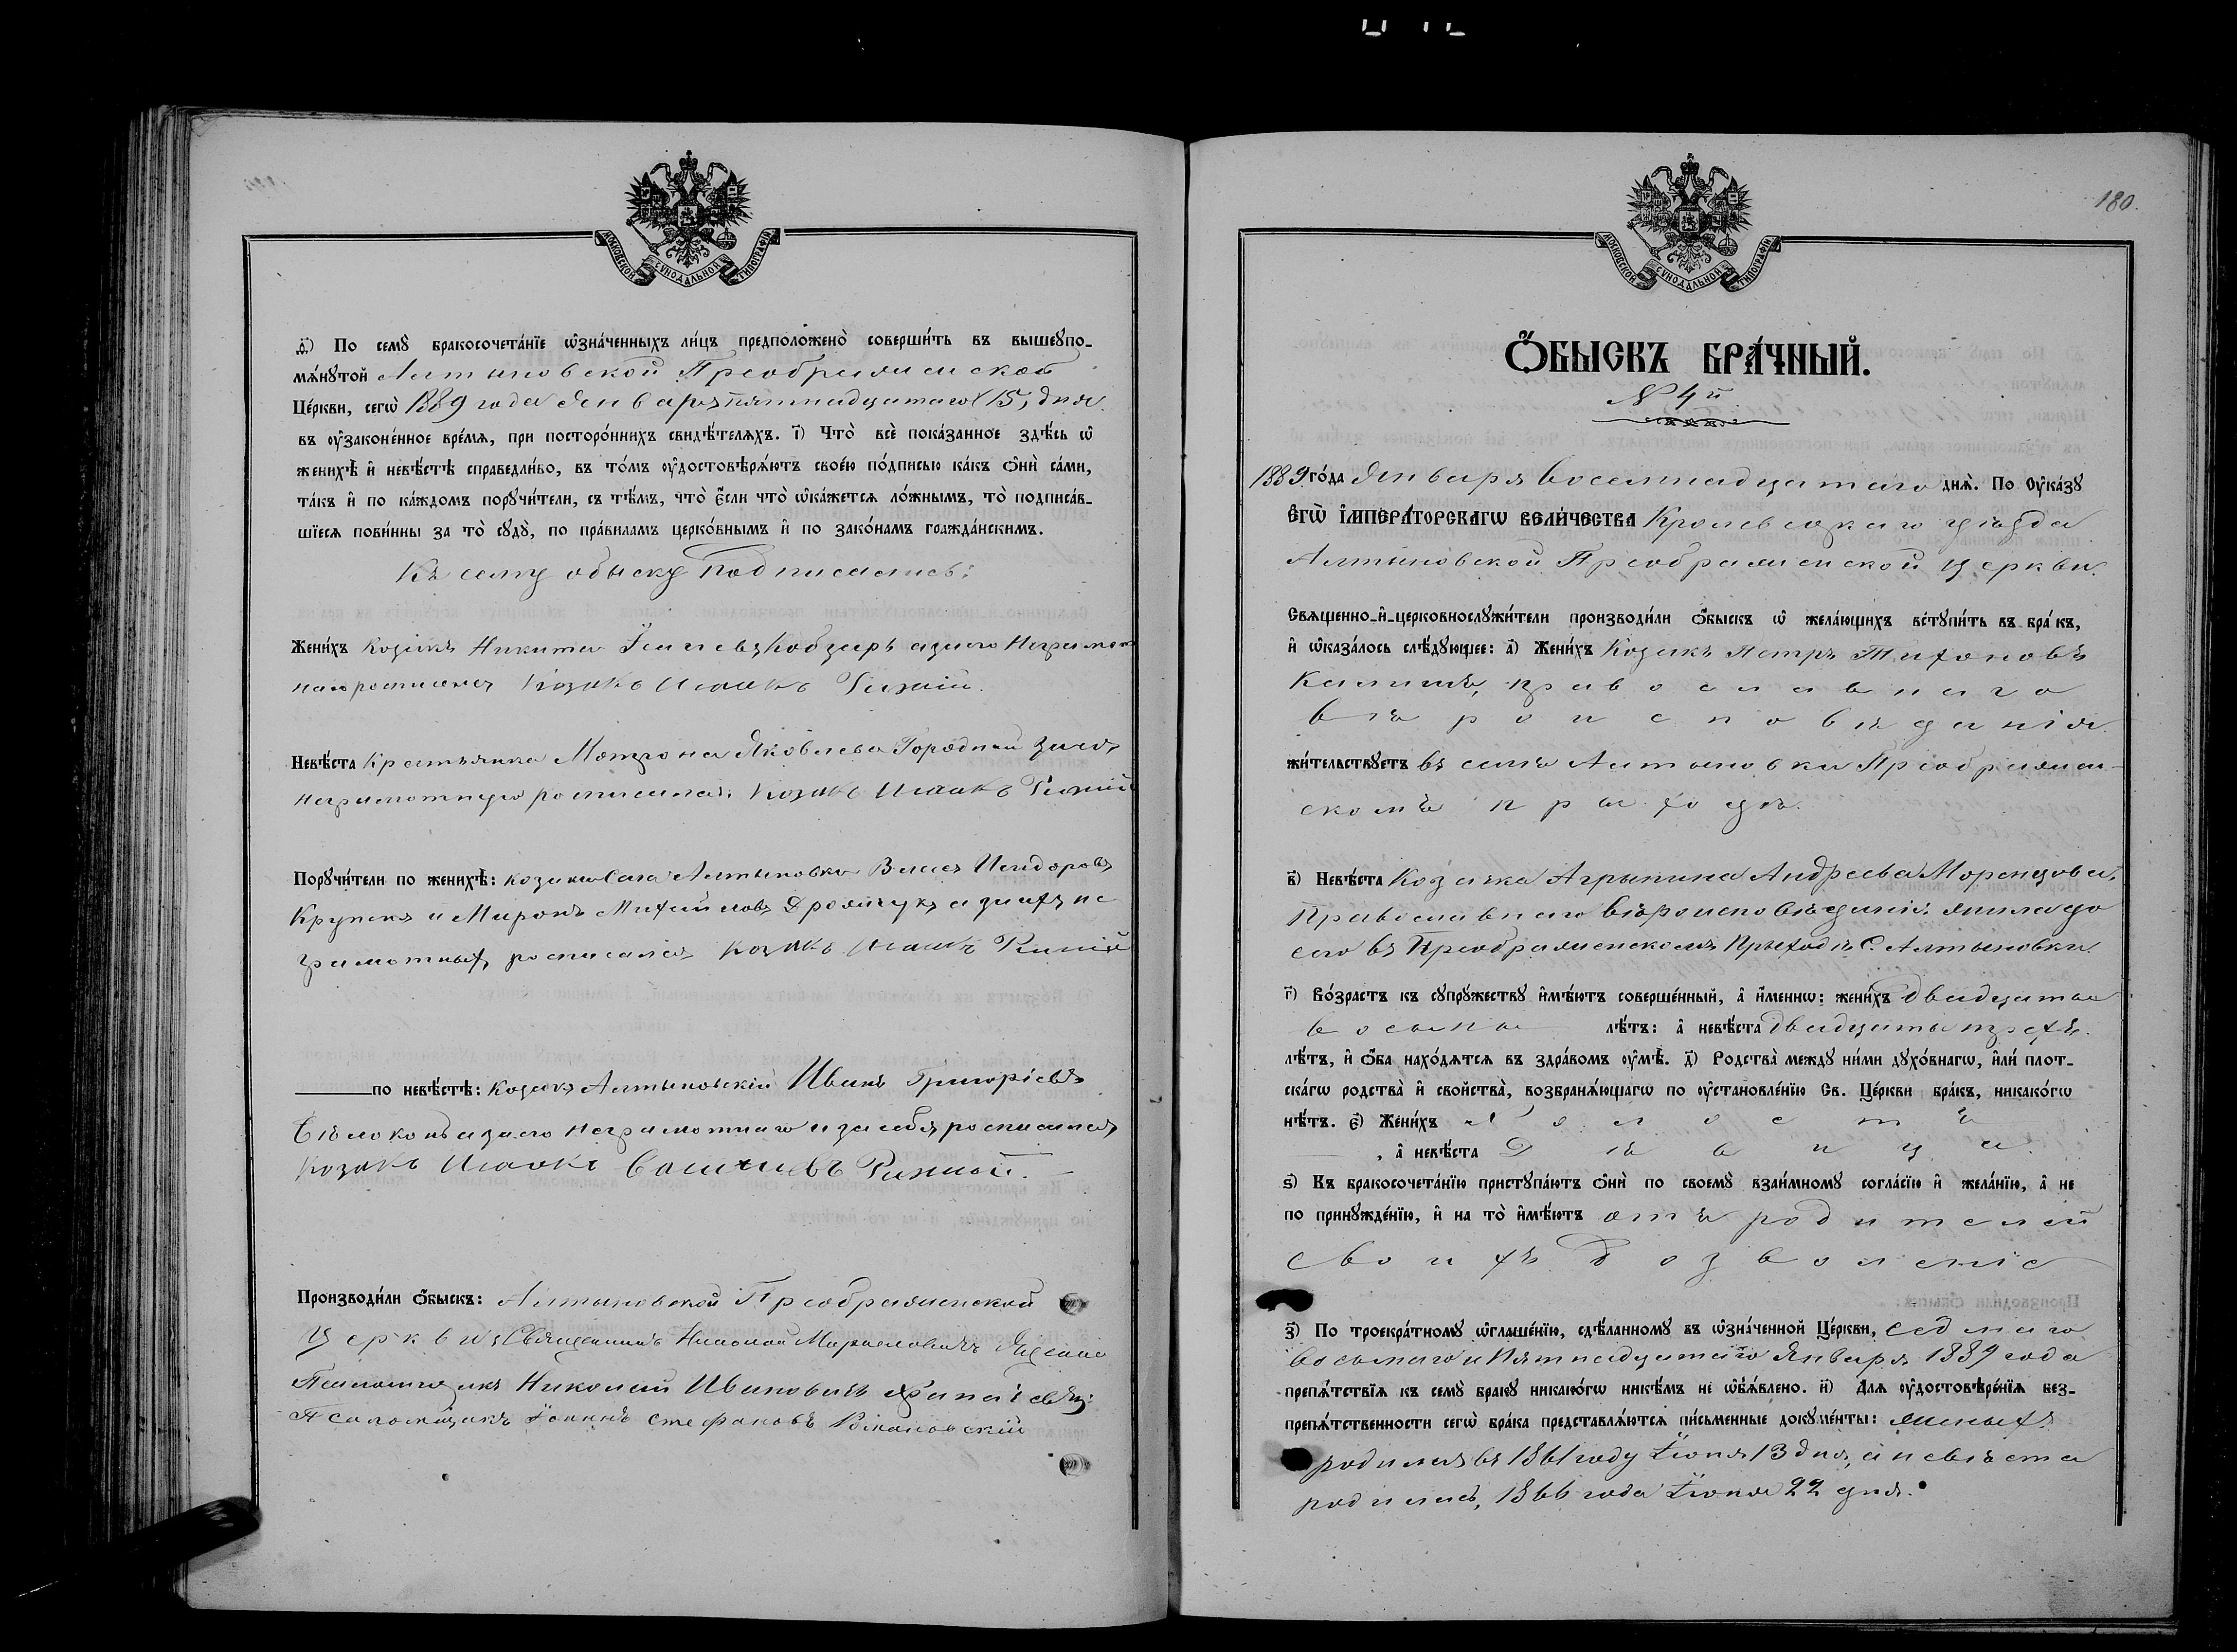 МОСКОВСКОЙ СѴНОДАЛЬНОЙ ТИПОГРАФІИ
ѳ҃) По семꙋ̀ бракосочета́нїе ѡ҆зна́ченныхъ ли́цъ предположено̀ соверши́ть въ вышеꙋпо-
мѧ́нꙋтой Алтыновской Преображенской
Це́ркви, сегѡ̀ 1889 года Января пятнадцатого (15) дня
въ ᲂу҆зако́ненное вре́мѧ, при посторо́ннихъ свидѣ́телѧхъ. і҃) Что̀ всѐ пока́занное здѣ́сь ѡ҆
женихѣ̀ и҆ невѣ́стѣ справедли́во, въ то́мъ ᲂу҆достовѣрѧ́ютъ свое́ю по́дписью ка́къ ѻ҆нѝ са́ми,
та́къ и҆ по ка́ждомъ порꙋчи́тели, съ тѣ́мъ, что̀ є҆́сли что̀ ѡ҆ка́жетсѧ ло́жнымъ, то̀ подписа́в-
шїесѧ пови́нны за то̀ сꙋдꙋ̀, по пра́виламъ церко́внымъ и҆ по зако́намъ гражда́нскимъ.
Къ сему обыску подписались:
Жени́хъ Козакъ Никита Кобзарь а за него Неграмот
наго росписался Козакъ Исаакъ
Невѣ́ста Крестьянка Мотрона Яковлева Городная за нея
неграмотную росписался Козакъ Исаакъ
Порꙋчи́тели по женихѣ̀: козаки Села Алтыновки Исидоровъ
и Миронъ а за ихъ не
грамотныхъ росписался Козакъ Исаакъ
по невѣ́стѣ: Козакъ Алтыновскій Иванъ Григоріевъ
а за него неграмотнаго и за себя росписался
Козакъ Исаакъ
Производи́ли ѻ҆́быскъ: Алтыновской Преображенской
Церкви Священникъ Николай
Псаломщикъ Николай Ивановичъ
Псаломщикъ Іоаннъ Стефановъ
180.
МОСКОВСКОЙ СѴНОДАЛЬНОЙ ТИПОГРАФІИ
Ѻ҆́БЫСКЪ БРА́ЧНЫЙ.
№ 4й
1889 го́да Января восемнадцатаго днѧ̀. По Оу҆ка́зꙋ
Є҆ГѠ̀ І҆МПЕРА́ТОРСКАГѠ ВЕЛИ́ЧЕСТВА Кролевецкаго уѣзда
Алтыновской Преображенской церкви.
Свѧще́нно-и҆-церковнослꙋжи́тели производи́ли ѻ҆́быскъ ѡ҆ жела́ющихъ встꙋпи́ть въ бра́къ,
и҆ ѡ҆каза́лось слѣ́дꙋющее: а҃) Жени́хъ Козакъ Петръ Тихоновъ
православнаго
вѣроисповѣданія
жи́тельствꙋетъ въ селѣ Алтыновки Преображен-
скомъ приходѣ.
в҃) Невѣ́ста Козачка Агрыпина Андреева
Православнаго вѣроисповѣданія. жила до
сего въ Преображенскомъ Прыходѣ С. Алтыновки
г҃) Во́зрастъ къ сꙋпрꙋ́жествꙋ и҆мѣ́ютъ соверше́нный, а҆ и҆́меннѡ: жени́хъ двадцать
восемь лѣ́тъ: а҆ невѣ́ста двадцаты трехъ.
лѣ́тъ, и҆ ѻ҆́ба нахо́дѧтсѧ въ здра́вомъ ᲂу҆мѣ̀. д҃) Родства̀ междꙋ ни́ми дꙋхо́внагѡ, и҆лѝ плот-
ска́гѡ родства̀ и҆ сво́йства, возбранѧ́ющагѡ по ᲂу҆становле́нїю Св. Це́ркви бра́къ, никако́гѡ
нѣ́тъ. є҃) Жени́хъ Холостъ
, а҆ невѣ́ста Дѣвица.
ѕ҃) Къ бракосочета́нїю пристꙋпа́ютъ ѻ҆нѝ по своемꙋ̀ взаи́мномꙋ согла́сїю и҆ жела́нїю, а҆ не
по принꙋжде́нїю, и҆ на то̀ и҆мѣ́ютъ отъ родителей
своихъ Дозволеніе
з҃) По троекра́тномꙋ ѡ҆глаше́нїю, сдѣ́ланномꙋ въ ѡ҆зна́ченной Це́ркви, седмаго
восьмаго и Пятнадцатаго Января 1889 года
препѧ́тствїѧ къ семꙋ̀ бра́кꙋ никако́гѡ никѣ́мъ не ѡ҆б̾ѧ́влено. и҃) Длѧ ᲂу҆достовѣре́нїѧ без-
препѧ́тственности сегѡ̀ бра́ка представлѧ́ютсѧ пи́сьменные докꙋме́нты: жыныхъ
родился въ 1861 году Іюня 13 дня, а невѣста
родилась, 1866 года Іюня 22 дня.